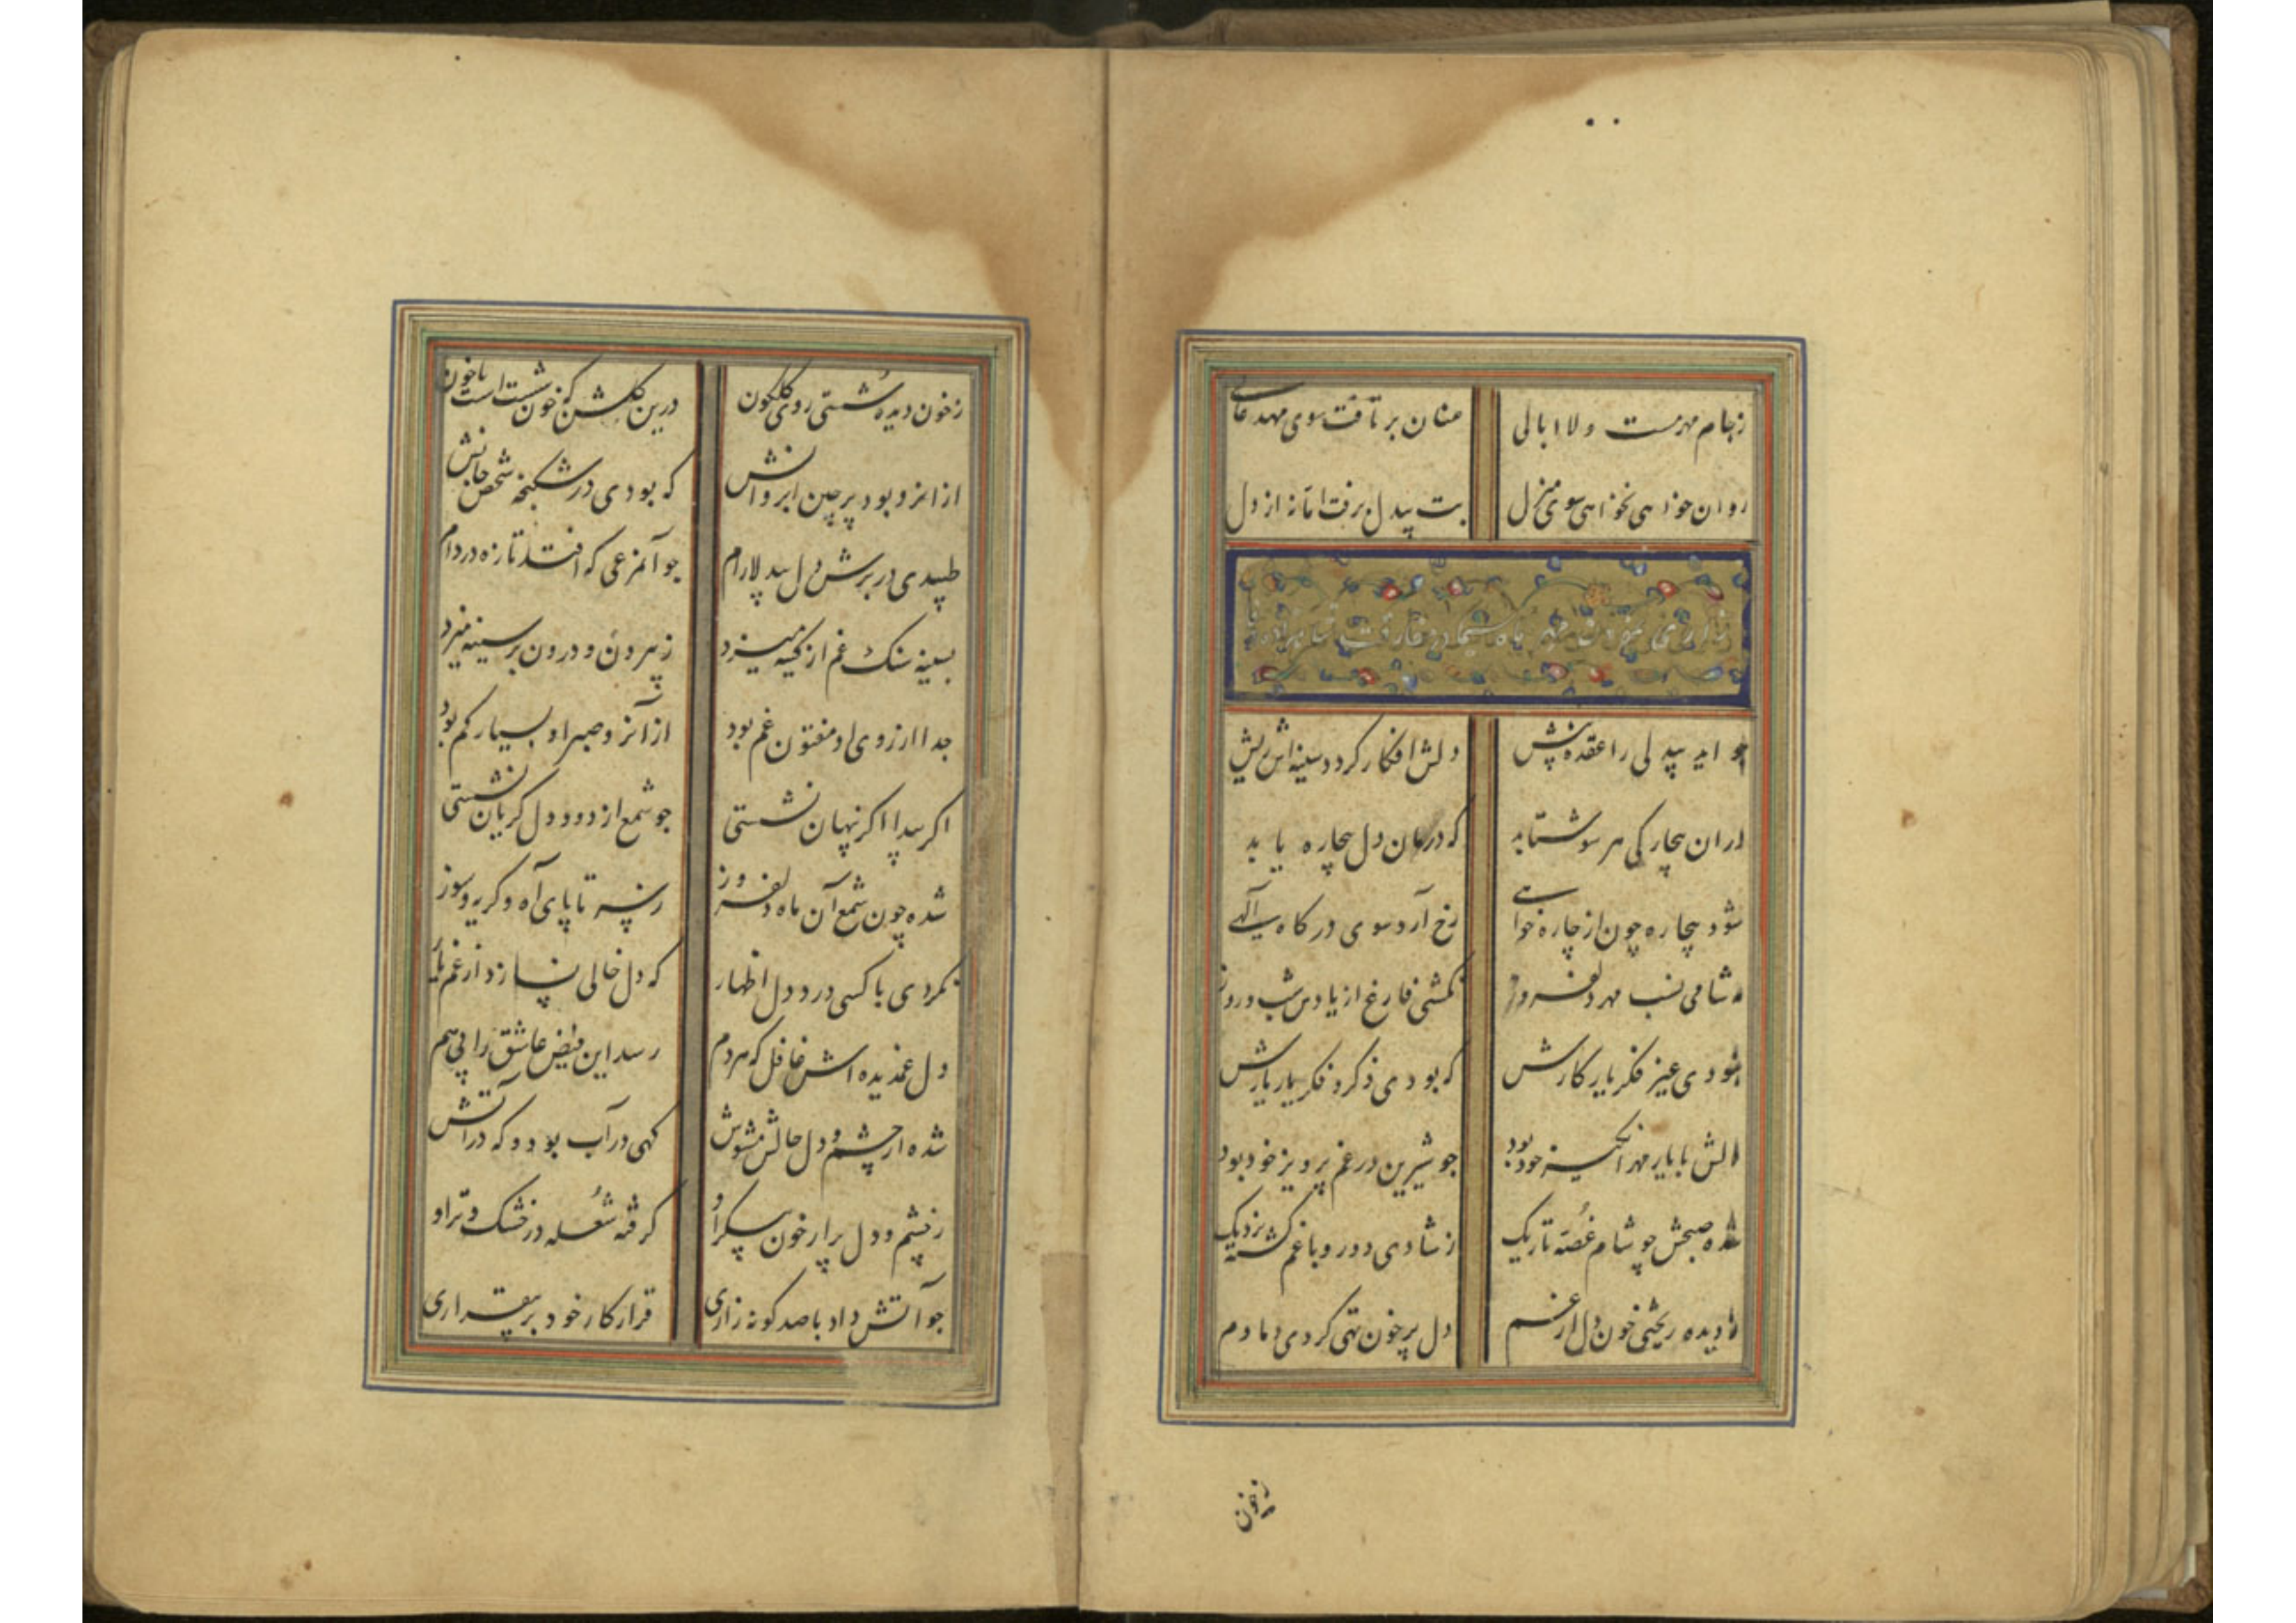 ز جام مهر مست و لا ابالی عنان بر تافت سوی مهد عالی
روان خواهی نخواهی سوی منزل بت بیدل برفت اما نه از دل
چو آید بیدلی را عقده پیش دلش افکار کردد سینه اش ریش
دران بیچارکی هر سو شتابد که درمان دل بیچاره یابد
شود بیچاره چون از چاره خواهی رخ آرد سوی درکاه الهی
شامی نسب مهر دلفروز نکشتی فارغ از یادش شب و روز
نبودی غیر فکر یار کارش که بودی ذکر و فکر یار یارش
دلش با یار مهر انکیز خود بود جو شیرین در غم پرویز خود بود
شده صبحش چو شام غصه تاریک ز شادی دور و با غم کشته نزدیک
ز دیده ریختی خون دل از غم دل پر خون تهی کردی دمادم
زخون
زخون دیده شستی روی کلکون درین کلشن که خون شست است با خون
از انرو بود پر چین ابروانش که بودی در شکنجه شخص جانش
طپیدی در برش دل بی دلارام جو آنمرغی که افتد تازه در دام
بسینه سنک غم از کینه میزد ز بیرون و درون بر سینه میزد
جدا از روی او مفتون غم بود از آنرو صبر او بسیار کم بود
اکر پیدا اکر پنهان نشستی جو شمع از دود دل کریان نشستی
شده چون شمع آن ماه دلفروز ز سر تا پای آه و کریه و سوز
نکردی با کسی درد دل اظهار که دل خالی نسازد از غم یار
دل غمدیده اش غافل که هر دم رسد این فیض عاشق را پی هم
شده از چشم و دل حالش مشوش کهی در آب بود و که در آتش
ز چشم و دل پر از خون پیکر او کرفته شعله در خشک و تر او
جو آتش داد با صد کونه زاری قرار کار خود بر بیقراری